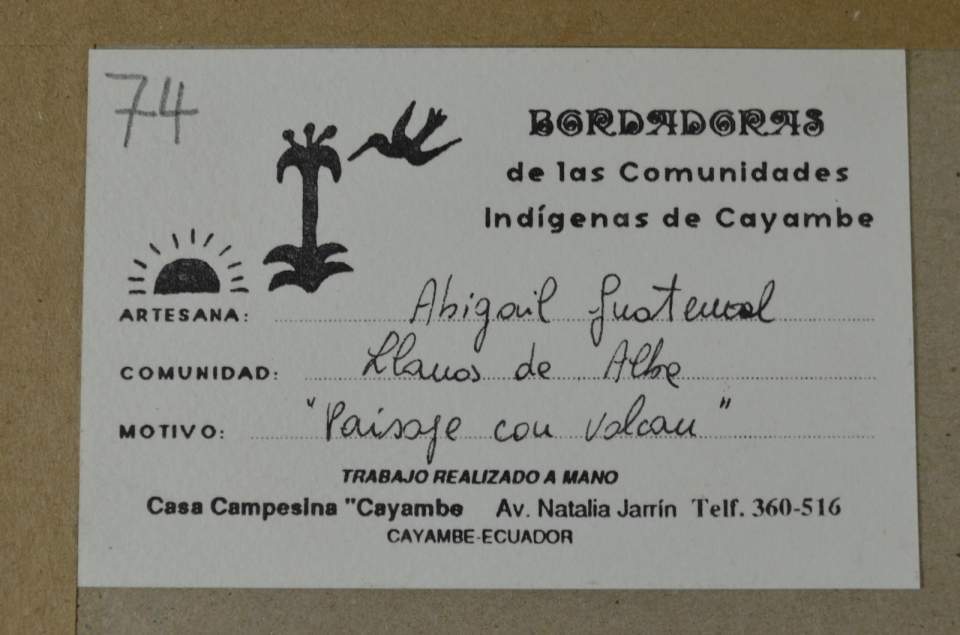 74
BORDADORAS
de las Comunidades
Indígenas de Cayambe
ARTESANA: Abigail Guatemal
COMUNIDAD: Llanos de Alba
MOTIVO: "Paisaje con volcan"
TRABAJO REALIZADO A MANO
Casa Campesina "Cayambe Av. Natalia Jarrín Telf. 360-516
CAYAMBE-ECUADOR